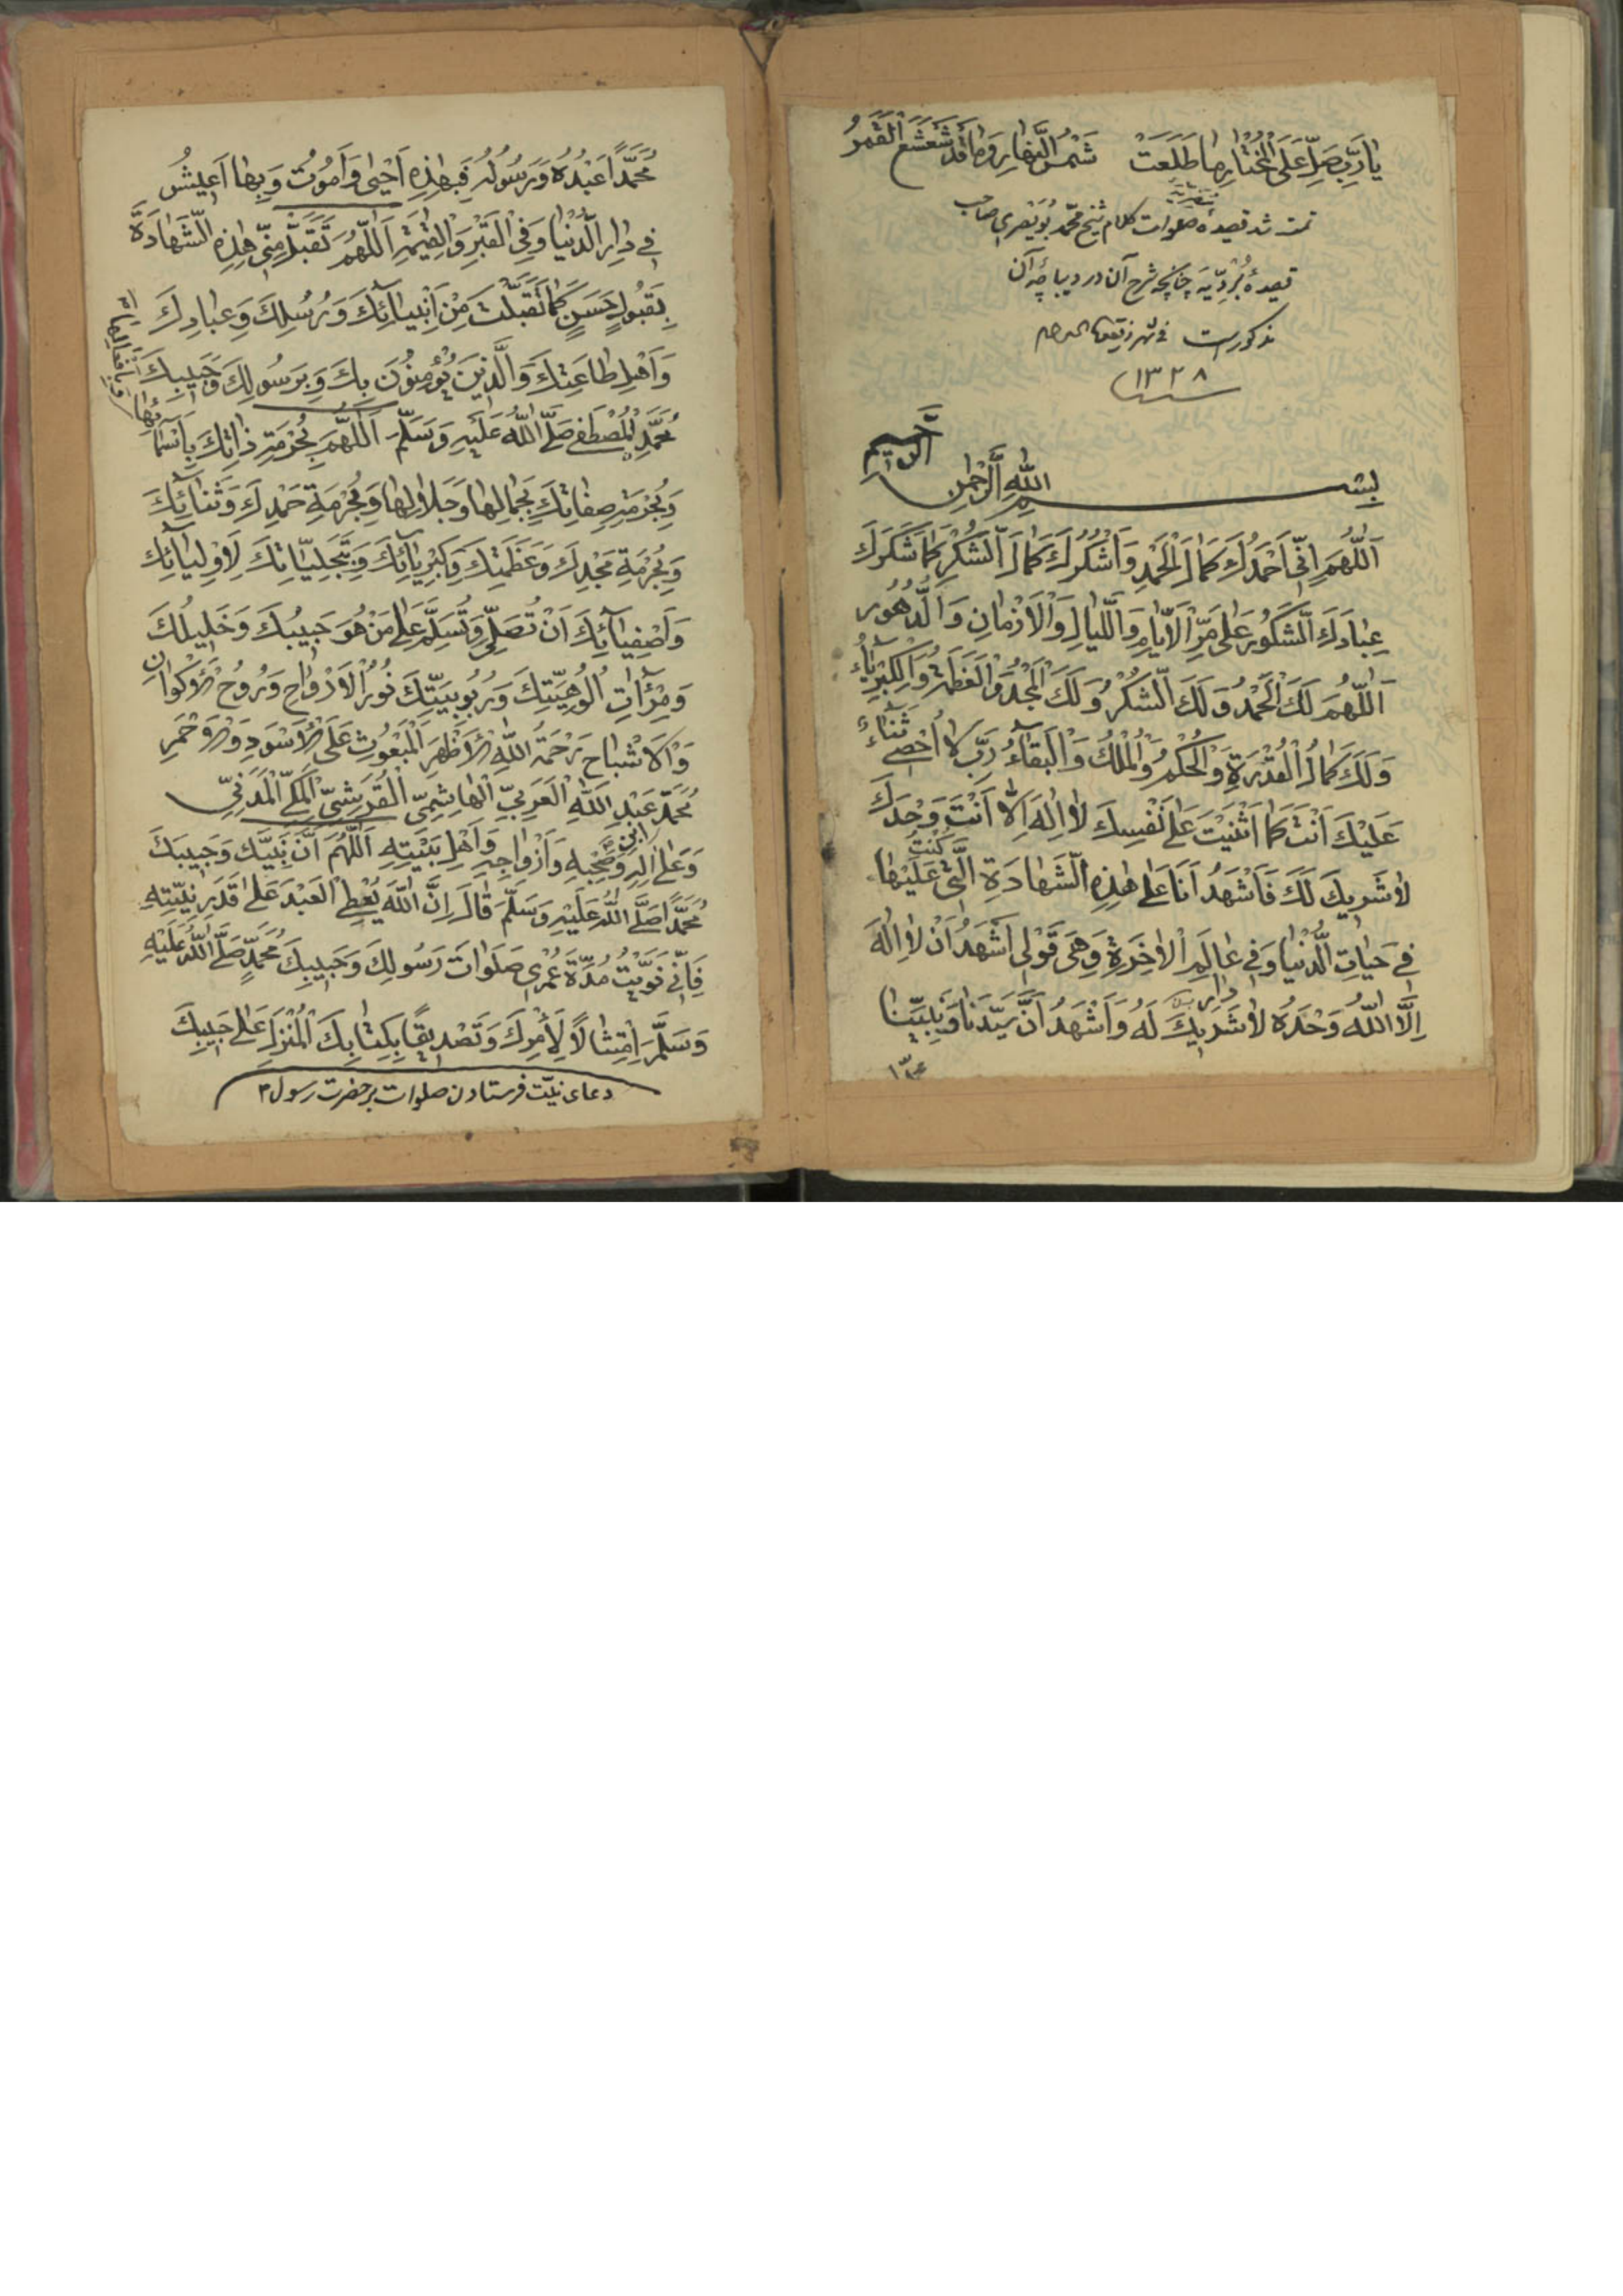 يَارَبِّ صَلِّ عَلَى الْمُخْتَارِ مَا طَلَعَتْ شَمْسُ النَّهَارِ وَمَا قَدْ شَعْشَعَ الْقَمَرُ
مضریه
تمت شد قصیدهٔ صلوات کلام شیخ محمد بُوَیْصری صاحب
قصیدهٔ بُرْدِیَّه چنانچه شرح آن در دیباچهٔ آن
مذکور است فی شهر ذیقعدة الحرام
سنه ١٣٢٨
بِسْمِ اللّٰهِ الرَّحْمٰنِ الرَّحِيمِ
اَللّٰهُمَّ اِنِّي اَحْمَدُكَ كَمَالَ الْحَمْدِ وَاَشْكُرُكَ كَمَالَ الشُّكْرِ كَمَا شَكَرَكَ
عِبَادَكَ الشَّكُورِ عَلٰى مَرِّ الْاَيَّامِ وَاللَّيَالِ وَالْاَزْمَانِ وَالدُّهُورِ
اَللّٰهُمَّ لَكَ الْحَمْدُ وَلَكَ الشُّكْرُ وَلَكَ الْمَجْدُ وَالْعَظَمَةُ وَالْكِبْرِيَاءُ
وَلَكَ كَمَالُ الْقُدْرَةِ وَالْحُكْمُ وَالْمُلْكُ وَالْبَقَاءُ رَبِّ لَا اُحْصِي ثَنَاءً
عَلَيْكَ اَنْتَ كَمَا اَثْنَيْتَ عَلٰى نَفْسِكَ لَا اِلٰهَ اِلَّا اَنْتَ وَحْدَكَ
لَا شَرِيكَ لَكَ فَاَشْهَدُ اَنَا عَلٰى هٰذِهِ الشَّهَادَةِ الَّتِي كُنْتُ عَلَيْهَا
فِي حَيَاتِ الدُّنْيَا وَفِي عَالَمِ الْاٰخِرَةِ وَهِيَ قَوْلِي اَشْهَدُ اَنْ لَا اِلٰهَ
اِلَّا اللّٰهُ وَحْدَهُ لَا شَرِيكَ لَهُ وَاَشْهَدُ اَنَّ سَيِّدَنَا وَنَبِيَّنَا
مُحَمَّدًا عَبْدُهُ وَرَسُولُهُ فَبِهٰذِهِ اَحْيٰى وَاَمُوتُ وَبِهَا اَعِيشُ
فِي دَارِ الدُّنْيَا وَفِي الْقَبْرِ وَالْقِيٰمَةِ اَللّٰهُمَّ تَقَبَّلْ مِنِّي هٰذِهِ الشَّهَادَةَ
بِقَبُولٍ حَسَنٍ كَمَا تَقَبَّلْتَ مِنْ اَنْبِيَآئِكَ وَرُسُلِكَ وَعِبَادِكَ
وَاَهْلِ طَاعَتِكَ وَالَّذِينَ يُؤْمِنُونَ بِكَ وَبِرَسُولِكَ وَحَبِيبِكَ
مُحَمَّدِ الْمُصْطَفٰى صَلَّى اللّٰهُ عَلَيْهِ وَسَلَّمَ اَللّٰهُمَّ بِحُرْمَةِ ذَاتِكَ بِاَسْمَآئِهَا
وَبِحُرْمَةِ صِفَاتِكَ بِجَمَالِهَا وَجَلَالِهَا وَبِحُرْمَةِ حَمْدِكَ وَثَنَآئِكَ
وَبِحُرْمَةِ مَجْدِكَ وَعَظَمَتِكَ وَكِبْرِيَآئِكَ وَبِتَجَلِيَّاتِكَ لِاَوْلِيَآئِكَ
وَاَصْفِيَآئِكَ اَنْ تُصَلِّيَ وَتُسَلِّمَ عَلٰى مَنْ هُوَ حَبِيبُكَ وَخَلِيلُكَ
وَمِرْأٰتِ اُلُوهِيَّتِكَ وَرُبُوبِيَّتِكَ نُورُ الْاَرْوَاحِ وَرُوحُ الْاَكْوَانِ
وَالْاَشْبَاحِ رَحْمَةُ اللّٰهِ الْاَظْهَرِ الْمَبْعُوثِ عَلَى الْاَسْوَدِ وَالْاَحْمَرِ
مُحَمَّدِ ابْنِ عَبْدِ اللّٰهِ الْعَرَبِيِّ الْهَاشِمِيِّ الْقُرَيْشِيِّ الْمَكِّيِّ الْمَدَنِيِّ
وَعَلٰى اٰلِهِ وَصَحْبِهِ وَاَزْوَاجِهِ وَاَهْلِ بَيْتِهِ اَللّٰهُمَّ اَنَّ نَبِيَّكَ وَحَبِيبَكَ
مُحَمَّدًا صَلَّى اللّٰهُ عَلَيْهِ وَسَلَّمَ قَالَ اِنَّ اللّٰهَ يُعْطِي الْعَبْدَ عَلٰى قَدَرِ نِيَّتِهِ
فَاِنِّي نَوَيْتُ مُدَّةَ عُمْرِي صَلَوَاتَ رَسُولِكَ وَحَبِيبِكَ مُحَمَّدٍ صَلَّى اللّٰهُ عَلَيْهِ
وَسَلَّمَ اِمْتِثَالًا لِاَمْرِكَ وَتَصْدِيقًا بِكِتَابِكَ الْمُنْزَلِ عَلٰى حَبِيبِكَ
دعای نیّت فرستادن صلوات بر حضرت رسول ؐ